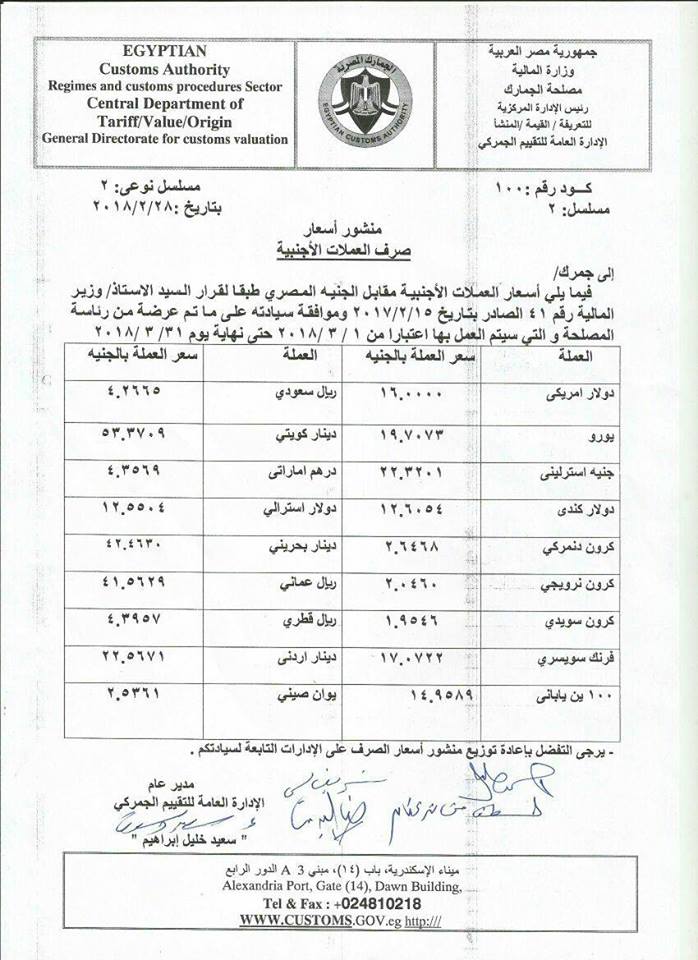 EGYPTIAN
Customs Authority
Regimes and customs procedures Sector
Central Department of
Tariff/Value/Origin
General Directorate for customs valuation
الجمارك المصرية
EGYPTIAN CUSTOMS AUTHORITY
جمهورية مصر العربية
وزارة المالية
مصلحة الجمارك
رئيس الإدارة المركزية
للتعريفة / القيمة /المنشأ
الإدارة العامة للتقييم الجمركي
كـود رقم :١٠٠ مسلسل نوعى: ٢
مسلسل: ٢ بتاريخ :٢٠١٨/٢/٢٨
منشور أسعار
صرف العملات الأجنبية
إلى جمرك/
فيما يلي أسعار العملات الأجنبية مقابل الجنيه المصري طبقا لقرار السيد الاستاذ/ وزير
المالية رقم ٤١ الصادر بتاريخ ٢٠١٧/٢/١٥ وموافقة سيادته على ما تم عرضة من رئاسة
المصلحة و التي سيتم العمل بها اعتبارا من ١ / ٣ /٢٠١٨ حتى نهاية يوم ٣١/ ٣ /٢٠١٨
العملة سعر العملة بالجنيه العملة سعر العملة بالجنيه
دولار امريكى ١٦.٠٠٠٠ ريال سعودي ٤.٢٦٦٥
يورو ١٩.٧٠٧٣ دينار كويتي ٥٣.٣٧٠٩
جنيه استرلينى ٢٢.٣٢٠١ درهم اماراتى ٤.٣٥٦٩
دولار كندى ١٢.٦٠٥٤ دولار استرالي ١٢.٥٥٠٤
كرون دنمركي ٢.٦٤٦٨ دينار بحريني ٤٢.٤٦٣٠
كرون نرويجي ٢.٠٤٦٠ ريال عماني ٤١.٥٦٢٩
كرون سويدي ١.٩٥٤٦ ريال قطري ٤.٣٩٥٧
فرنك سويسري ١٧.٠٧٢٢ دينار اردنى ٢٢.٥٦٧١
١٠٠ ين يابانى ١٤.٩٥٨٩ يوان صيني ٢.٥٣٦١
- يرجى التفضل بإعادة توزيع منشور أسعار الصرف على الإدارات التابعة لسيادتكم .
مدير عام
الإدارة العامة للتقييم الجمركي
" سعيد خليل إبراهيم "
ميناء الإسكندرية، باب (١٤)، مبني 3 A الدور الرابع
Alexandria Port, Gate (14), Dawn Building,
Tel & Fax : +024810218
WWW.CUSTOMS.GOV.eg http:///